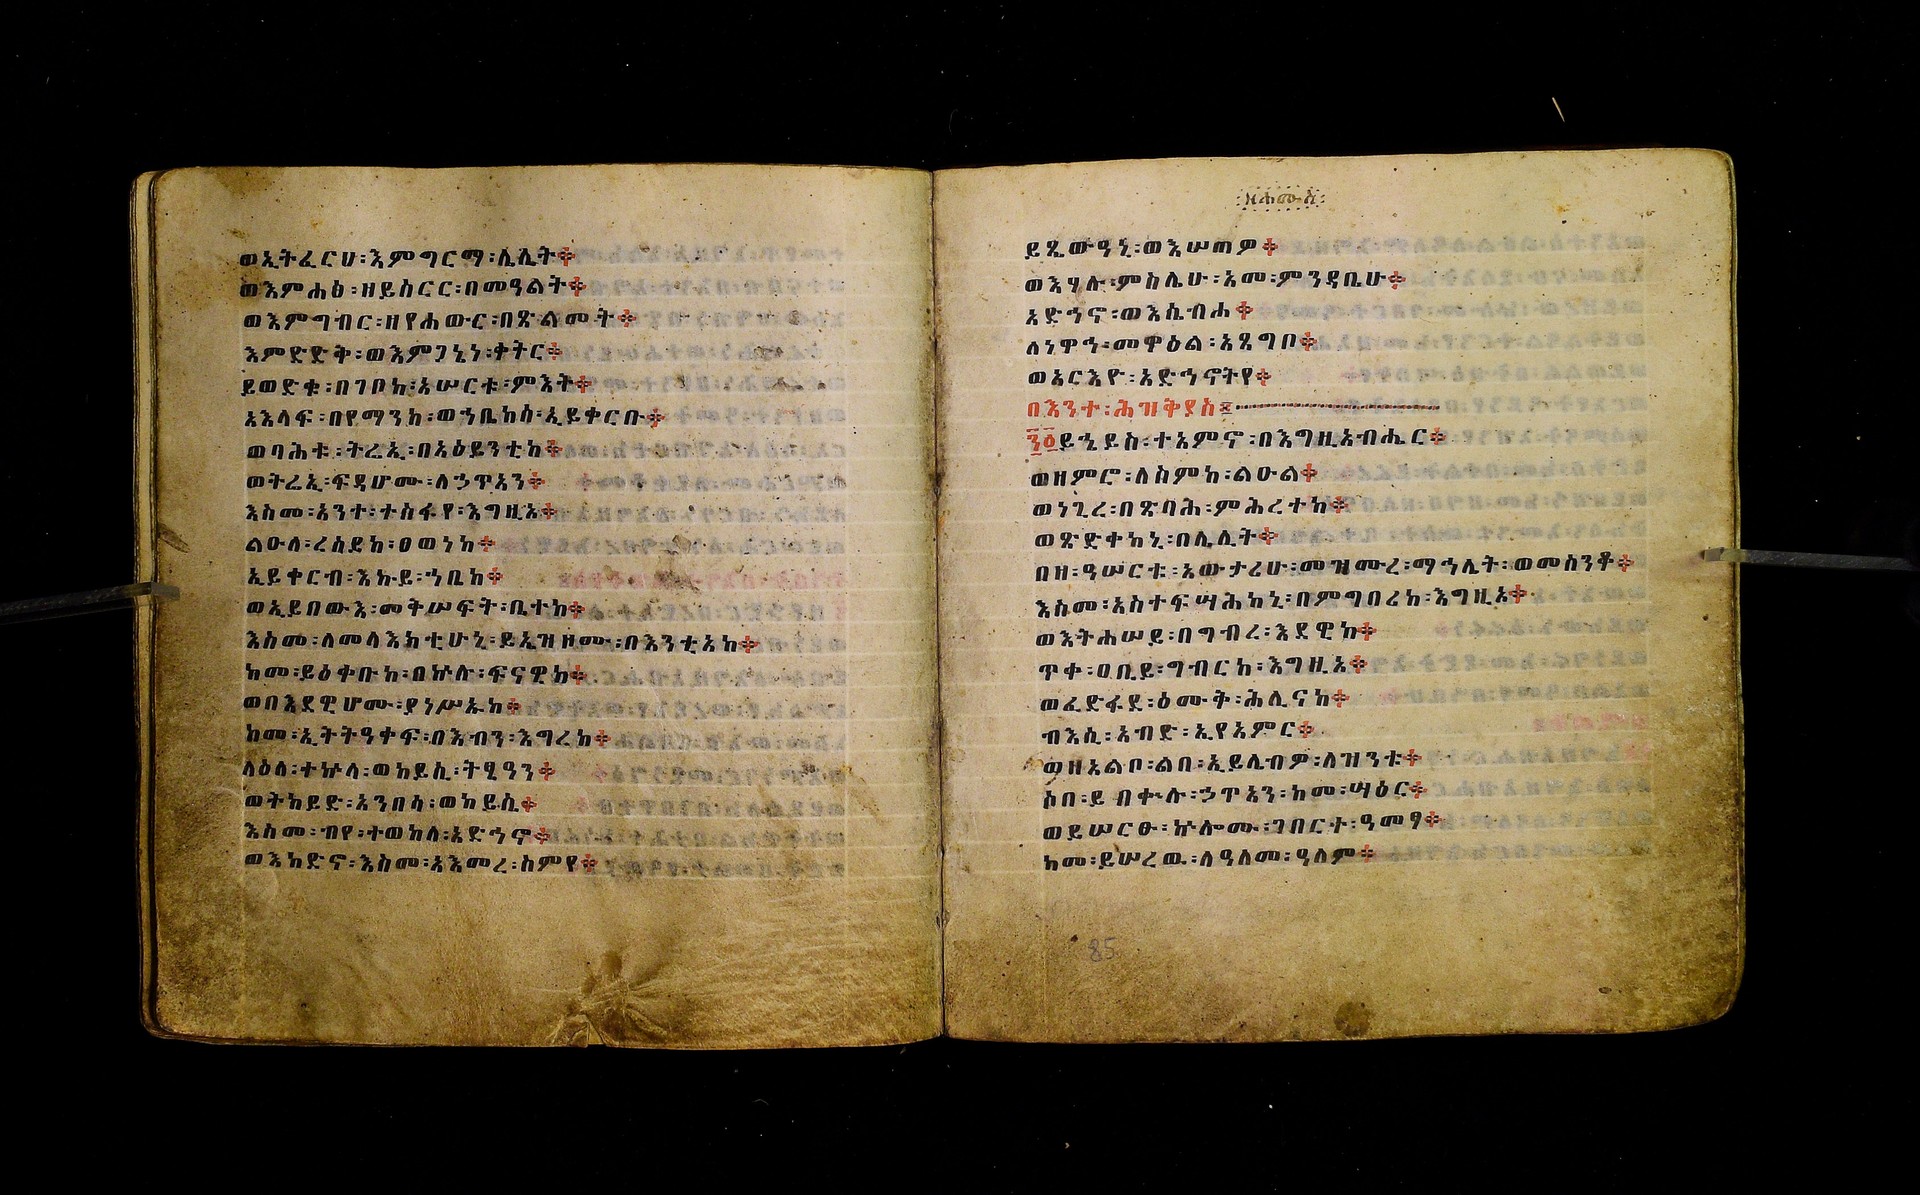 ወኢትፈርህ፡እምግርማ፡ሌሊት።
ወእምሐፅ፡ዘይሰርር፡በመዓልት።
ወእምግብር፡ዘየሐውር፡በጽልመት።
እምድድቅ፡ወእምጋኔነ፡ቀትር።
ይወድቁ፡በገቦከ፡አሠርቱ፡ምእት።
አእላፍ፡በየማንከ፡ወኀቤከሰ፡ኢይቀርቡ።
ወባሕቱ፡ትሬኢ፡በአዕይንቲከ።
ወትሬኢ፡ፍዳሆሙ፡ለኃጥአን።
እስመ፡አንተ፡ተስፋየ፡እግዚአ።
ልዑለ፡ረሰይከ፡ፀወነከ።
ኢይቀርብ፡እኩይ፡ኀቤከ።
ወኢይበውእ፡መቅሠፍት፡ቤተከ።
እስመ፡ለመላእክቲሁኒ፡ይኤዝዞሙ፡በእንቲአከ።
ከመ፡ይዕቀቡከ፡በኵሉ፡ፍናዊከ።
ወበእደዊሆሙ፡ያነሥኡከ።
ከመ፡ኢትትዓቀፍ፡በእብን፡እግረከ።
ላዕለ፡ተኵላ፡ወከይሲ፡ትፂዓን።
ወትከይድ፡አንበሳ፡ወከይሲ።
እስመ፡ብየ፡ተወከለ፡አድኅኖ።
ወእከድኖ፡እስመ፡አእመረ፡ስምየ።
ዘሐሙስ፡
ይጼውዓኒ፡ወእሠጠዎ።
ወእሄሉ፡ምስሌሁ፡አመ፡ምንዳቤሁ።
አድኅኖ፡ወእሴብሐ።
ለነዋኅ፡መዋዕል፡አጸግቦ።
ወአርእዮ፡አድኅኖትየ።
በእንተ፡ሕዝቅያስ፡
፺፩ይኄይስ፡ተአምኖ፡በእግዚአብሔር።
ወዘምሮ፡ለስምከ፡ልዑል።
ወነጊረ፡በጽባሕ፡ምሕረተከ።
ወጽድቀከኒ፡በሌሊት።
በዘ፡ዓሠርቱ፡አውታሪሁ፡መዝሙረ፡ማኅሌት፡ወመሰንቆ።
እስመ፡አስተፍሣሕከኒ፡በምግባሪከ፡እግዚአ።
ወእትሐሠይ፡በግብረ፡እደዊከ።
ጥቀ፡ዐቢይ፡ግብርከ፡እግዚአ።
ወፈድፋደ፡ዕሙቅ፡ሕሊናከ።
ብእሲ፡አብድ፡ኢየአምር።
ወዘአልቦ፡ልበ፡ኢይሌብዎ፡ለዝንቱ።
ሶበ፡ይበቍሉ፡ኃጥአን፡ከመ፡ሣዕር።
ወይሠርፁ፡ኵሎሙ፡ገበርተ፡ዓመፃ።
ከመ፡ይሠረዉ፡ለዓለመ፡ዓለም።
85